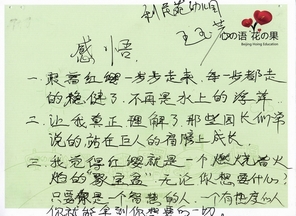 幼儿园
心の语 花の果
Beijing Hoing Education
感悟
一、跟着红缨一步步走来，每一步都走
的稳健了，不再是水上的浮萍。
二、让我真正理解了那些园长们常
说的站在巨人的肩膀上成长。
三、我觉得红缨就是一个燃烧着火
焰的“聚宝盆”无论你想要什么！
只要你是一个智慧的人，一个有态度的人
你就能拿到你想要的一切。